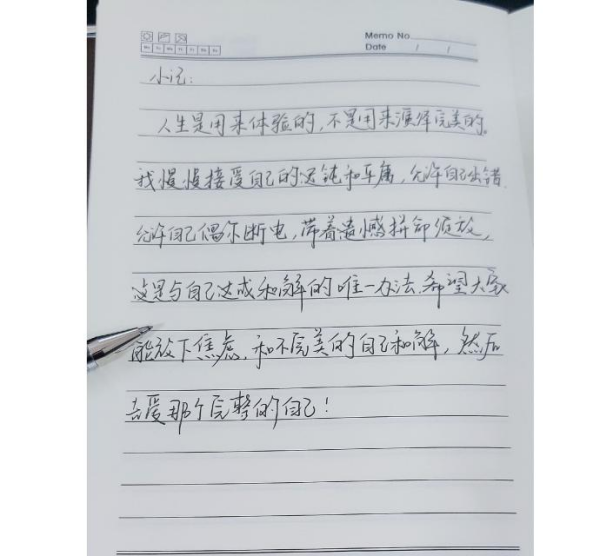 Memo No.
Date / /
小记:
人生是用来体验的,不是用来演绎完美的。
我慢慢接受自己的迟钝和平庸,允许自己出错
允许自己偶尔断电,带着遗憾拼命绽放,
这是与自己达成和解的唯一办法.希望大家
能放下焦虑,和不完美的自己和解,然后
去爱那个完整的自己!